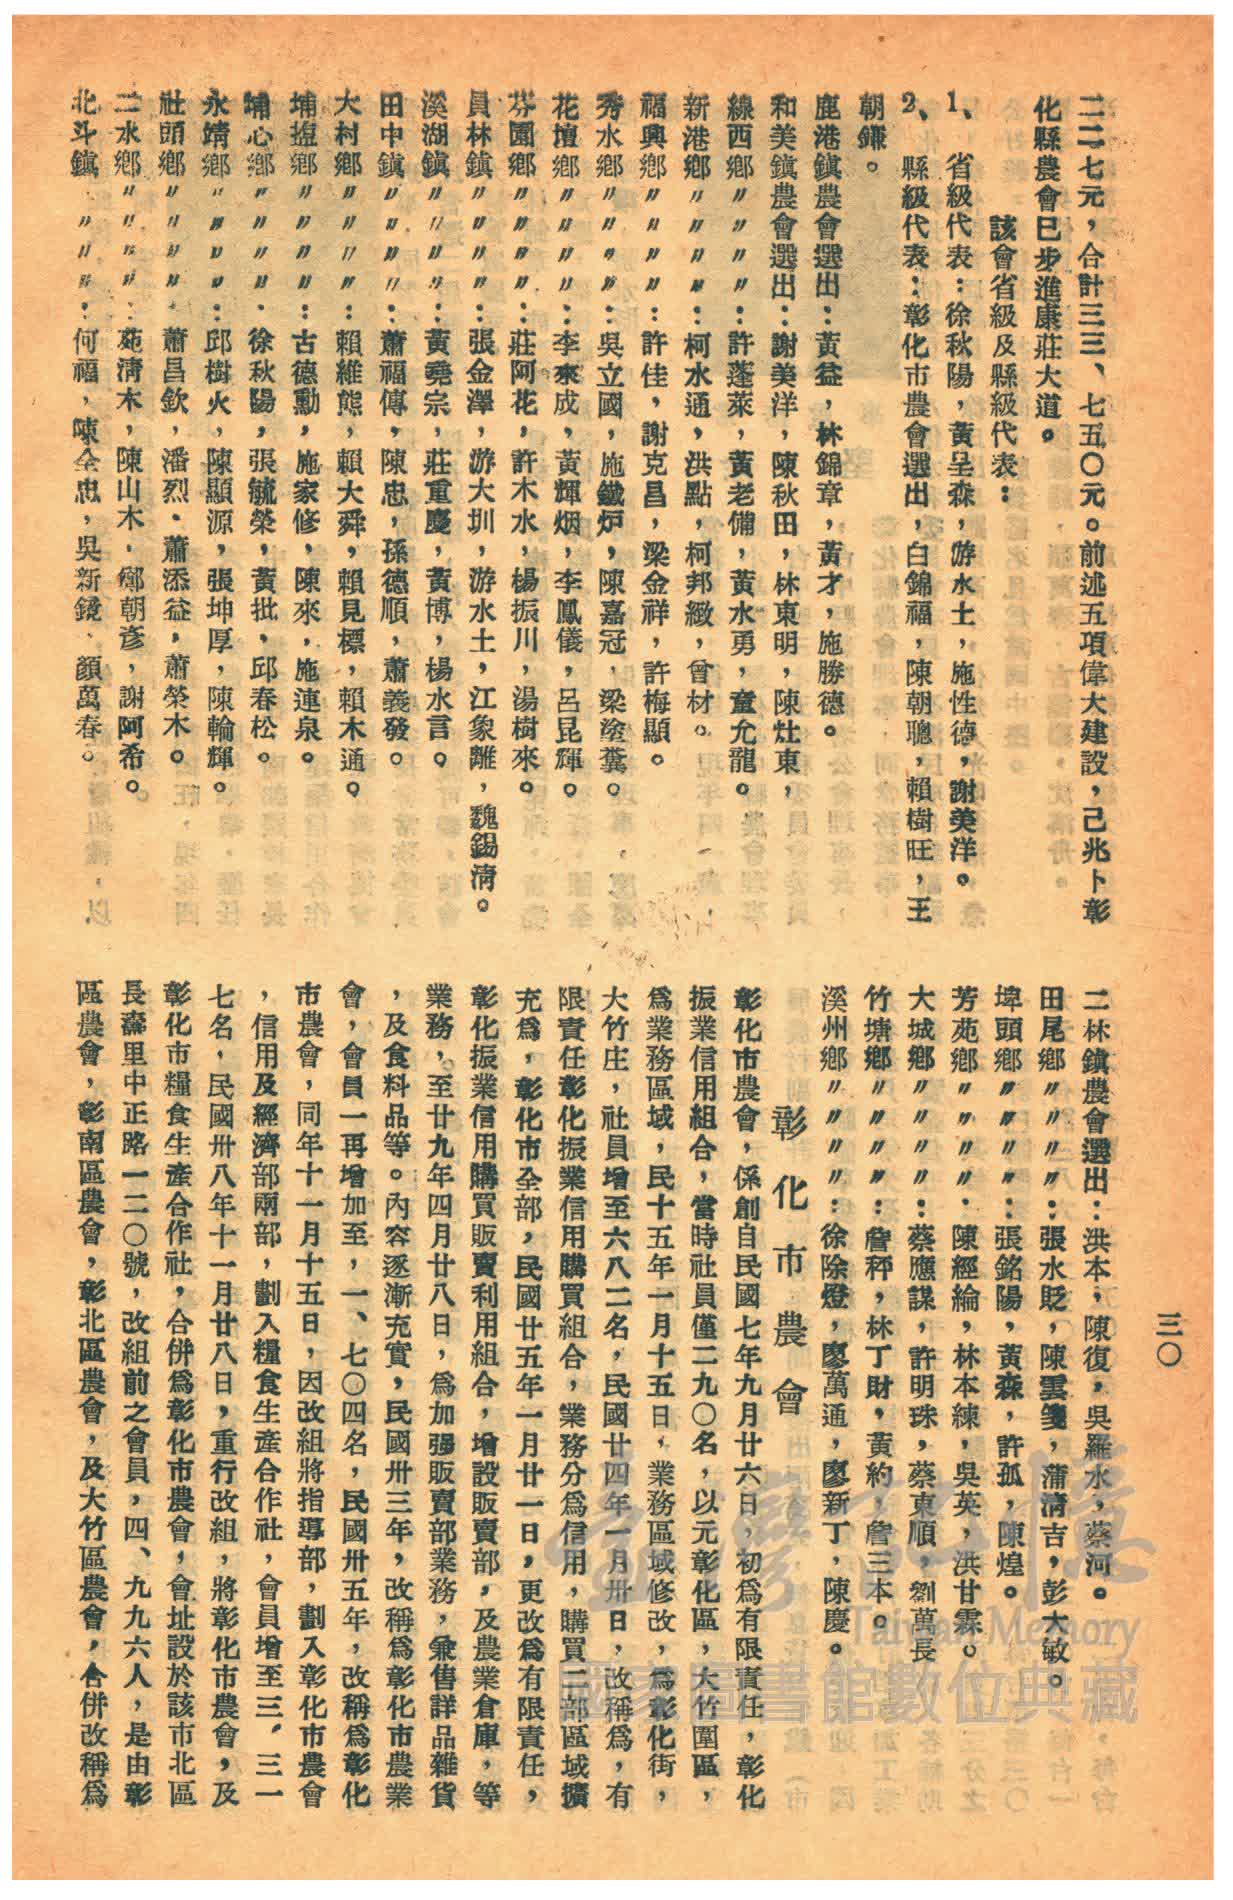 三〇
二二七元，合計三三、七五〇元。前述五項偉大建設，己兆卜彰
化縣農會已步進康莊大道。
該會省級及縣級代表：
1、省級代表：徐秋陽，黃呈森，游水土，施性德，謝美洋。
2、縣級代表：彰化市農會選出，白錦福，陳朝聰，賴樹旺，王
朝鏮。
鹿港鎮農會選出：黃益，林錦章，黃才，施勝德。
和美鎮農會選出：謝美洋，陳秋田，林東明，陳灶東，
線西鄉〃〃〃〃：許蓬萊，黃老備，黃水勇，童允龍。
新港鄉〃〃〃〃：柯水通，洪點，柯邦緻，曾材。
福興鄉〃〃〃〃：許佳，謝克昌，梁金祥，許梅顯
秀水鄉〃〃〃〃：吳立國，施鐵炉，陳嘉冠，梁塗糞。
花壇鄉〃〃〃〃：李來成，黃輝烟，李鳳儀，呂昆輝。
芬園鄉〃〃〃〃：莊阿花，許木水，楊振川，湯樹來。
員林鎮〃〃〃〃：張金澤，游大圳，游水土，江象離，魏錫淸。
溪湖鎮〃〃〃〃：黃堯宗，莊重慶，黃博，楊水言。
田中鎮〃〃〃〃：蕭福傳，陳忠，孫德順，蕭義發。
大村鄉〃〃〃〃：賴維熊，賴大舜，賴見標，賴木通。
埔塩鄉〃〃〃〃：古德勳，施家修，陳來，施連泉。
埔心鄉〃〃〃〃：徐秋陽，張毓榮，黃批，邱春松。
永靖鄉〃〃〃〃：邱樹火，陳顯源，張坤厚，陳輪輝。
社頭鄉〃〃〃〃：蕭昌欽，潘烈．蕭添益，蕭榮木。
二水鄉〃〃〃〃：苑淸木，陳山木，鄭朝彥，謝阿希。
北斗鎮〃〃〃〃：何福，陳全忠，吳新鏡、顏萬春。
二林鎮農會選出：洪本，陳復，吳羅水，蔡河。
田尾鄉〃〃〃〃：張水貶，陳雲箋，蒲淸吉，彭大敏。
埤頭鄉〃〃〃〃：張銘陽，黃森，許孤，陳煌。
芳苑鄉〃〃〃〃：陳經綸，林本練，吳英，洪甘霖。
大城鄉〃〃〃〃：蔡應謀，許明珠，蔡東順，劉萬長
竹塘鄉〃〃〃〃：詹秤，林丁財，黃約，詹三本。
溪州鄉〃〃〃〃：徐除燈，廖萬通，廖新丁，陳慶。
彰化市農會
彰化市農會，係創自民國七年九月廿六日，初爲有限責任，彰化
振業信用組合，當時社員僅二九〇名，以元彰化區，大竹圍區，
爲業務區域，民十五年一月十五日，業務區域修改，爲彰化街，
大竹庄，社員增至六八二名，民國廿四年一月卅日，改稱爲，有
限責任彰化振業信用購買組合，業務分爲信用，購買二部區域擴
充爲，彰化市全部，民國廿五年一月廿一日，更改爲有限責任，
彰化振業信用購買販賣利用組合，增設販賣部，及農業倉庫，等
業務，至廿九年四月廿八日，爲加强販賣部業務，兼售詳品雜貨
，及食料品等。內容逐漸充實，民國卅三年，改稱爲彰化市農業
會，會員一再增加至，一、七〇四名，民國卅五年，改稱爲彰化
市農會，同年十一月十五日，因改組將指導部，劃入彰化市農會
，信用及經濟部兩部，劃入糧食生產合作社，會員增至三，三一
七名，民國卅八年十一月廿八日，重行改組，將彰化市農會，及
彰化市糧食生產合作社，合併爲彰化市農會，會址設於該市北區
長壽里中正路一二〇號，改組前之會員，四、九九六人，是由彰
區農會，彰南區農會，彰北區農會，及大竹區農會，合併改稱爲
臺灣記憶
Taiwan Memory
國家圖書館數位典藏